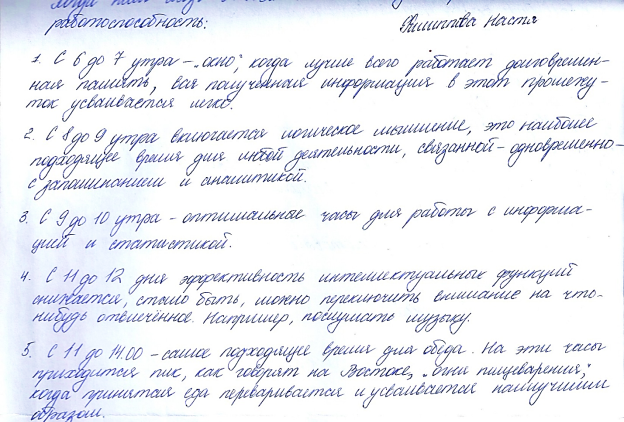 работоспособность: Филиппова Настя
1. С 6 до 7 утра – „окно", когда лучше всего работает долговремен-
ная память, вся полученная информация в этот промежу-
ток усваивается легко.
2. С 8 до 9 утра включается логическое мышление, это наиболее
подходящее время для любой деятельности, связанной – одновременно –
с запоминанием и аналитикой.
3. С 9 до 10 утра – оптимальные часы для работы с информа-
цией и статистикой.
4. С 11 до 12 дня эффективность интеллектуальных функций
снижается, стало быть, можно переключить внимание на что-
нибудь отвлечённое. Например, послушать музыку.
5. С 11 до 14.00 – самое подходящее время для обеда. На эти часы
приходится пик, как говорят на Востоке, „огня пищеварения",
когда принятая еда переваривается и усваивается наилучшим
образом.